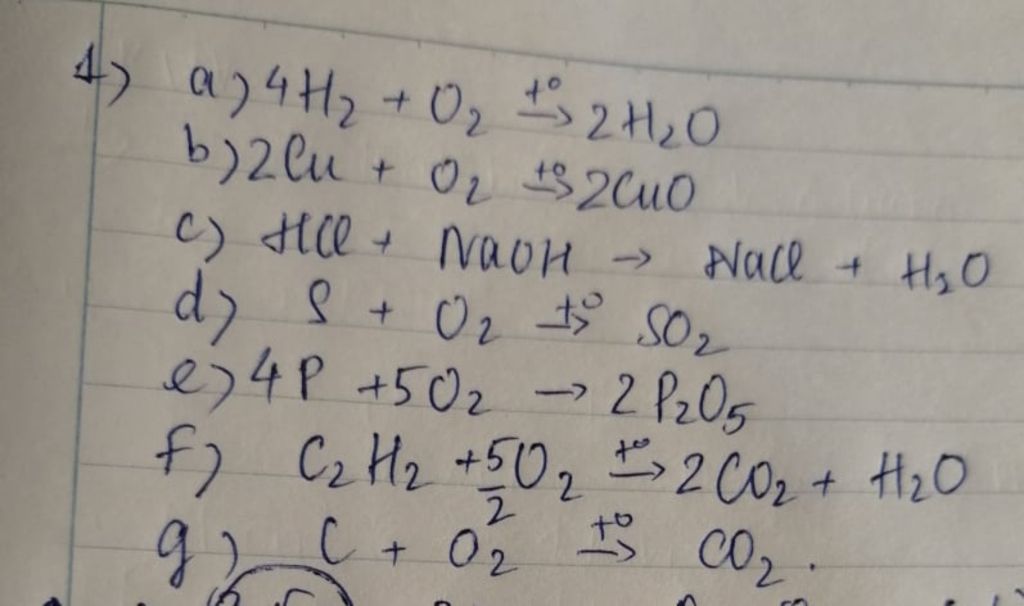 1) a) 4H₂ + O₂ →t° 2H₂O
b) 2Cu + O₂ →t° 2CuO
c) HCl + NaOH → NaCl + H₂O
d) S + O₂ →t° SO₂
e) 4P + 5O₂ → 2P₂O₅
f) C₂H₂ + 5/2 O₂ →t° 2CO₂ + H₂O
g) C + O₂ →t° CO₂.